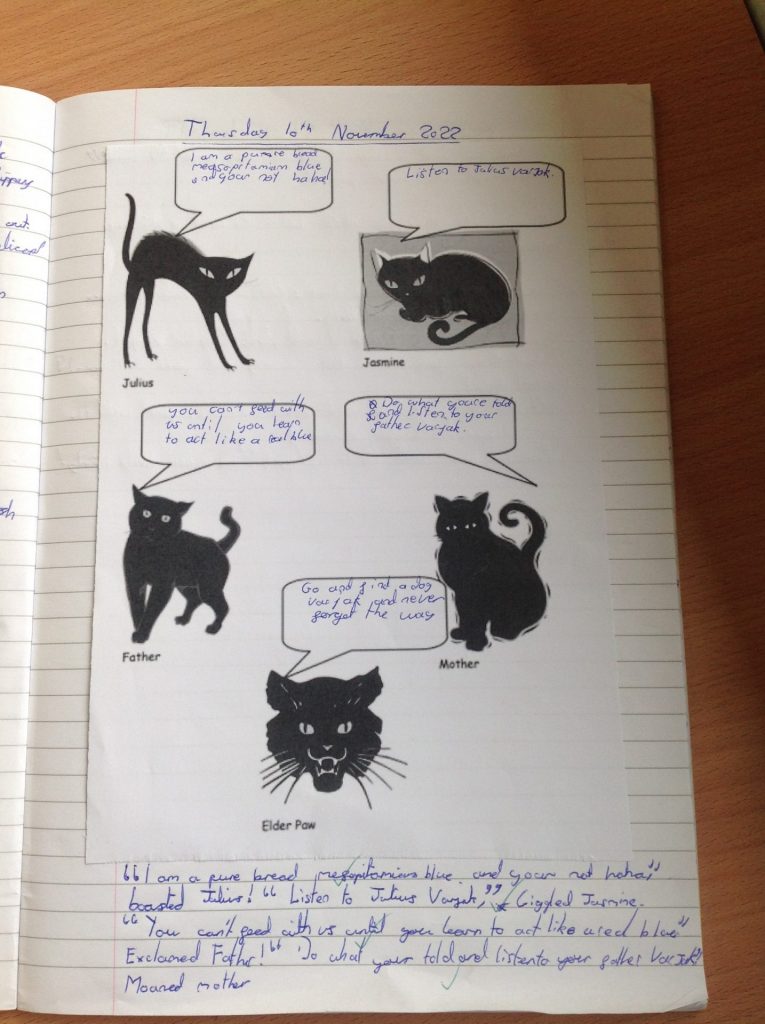 Thursday 10th November 2022
I am a puure bread
megsopitamam blue
and your not haha!
Listen to Julius Varjak.
Julius
Jasmine
you can't feed with
us until you learn
to act like a real blue
Do what youre told
and listen to your
father Varjak.
Father
Mother
Go and find a dog
Varjak and never
forget the way
Elder Paw
"I am a pure bread mesopitamian blue and your not haha"
boasted Julius! "Listen to Julius Varjak," Giggled Jasmine.
"You can't feed with us until you learn to act like a real blue"
Exclaimed Father! "Do what your told and listen to your father Varjak!"
Moaned mother
out.